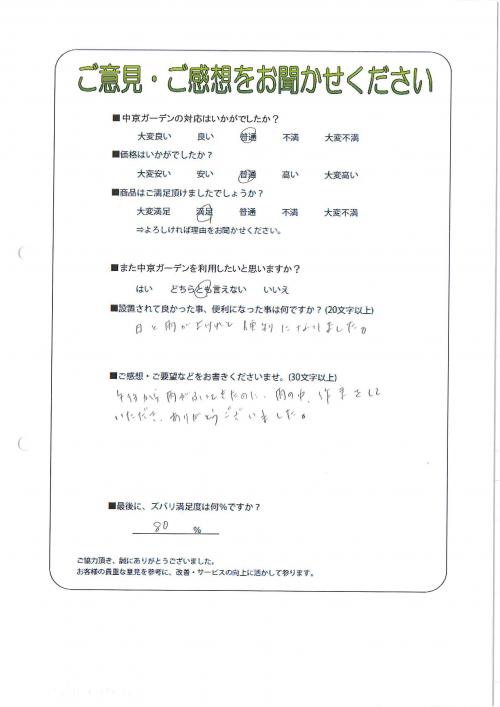 ご意見・ご感想をお聞かせください
■中京ガーデンの対応はいかがでしたか？
大変良い 良い 普通 不満 大変不満
■価格はいかがでしたか？
大変安い 安い 普通 高い 大変高い
■商品はご満足頂けましたでしょうか？
大変満足 満足 普通 不満 大変不満
⇒よろしければ理由をお聞かせください。
■また中京ガーデンを利用したいと思いますか？
はい どちらとも言えない いいえ
■設置されて良かった事、便利になった事は何ですか？(20文字以上)
日と雨がよけれて便利になりました。
■ご感想・ご要望などをお書きくださいませ。(30文字以上)
午後から雨がふってきたのに、雨の中、作業をして
いただき、ありがとうございました。
■最後に、ズバリ満足度は何％ですか？
80 %
ご協力頂き、誠にありがとうございました。
お客様の貴重な意見を参考に、改善・サービスの向上に活かして参ります。